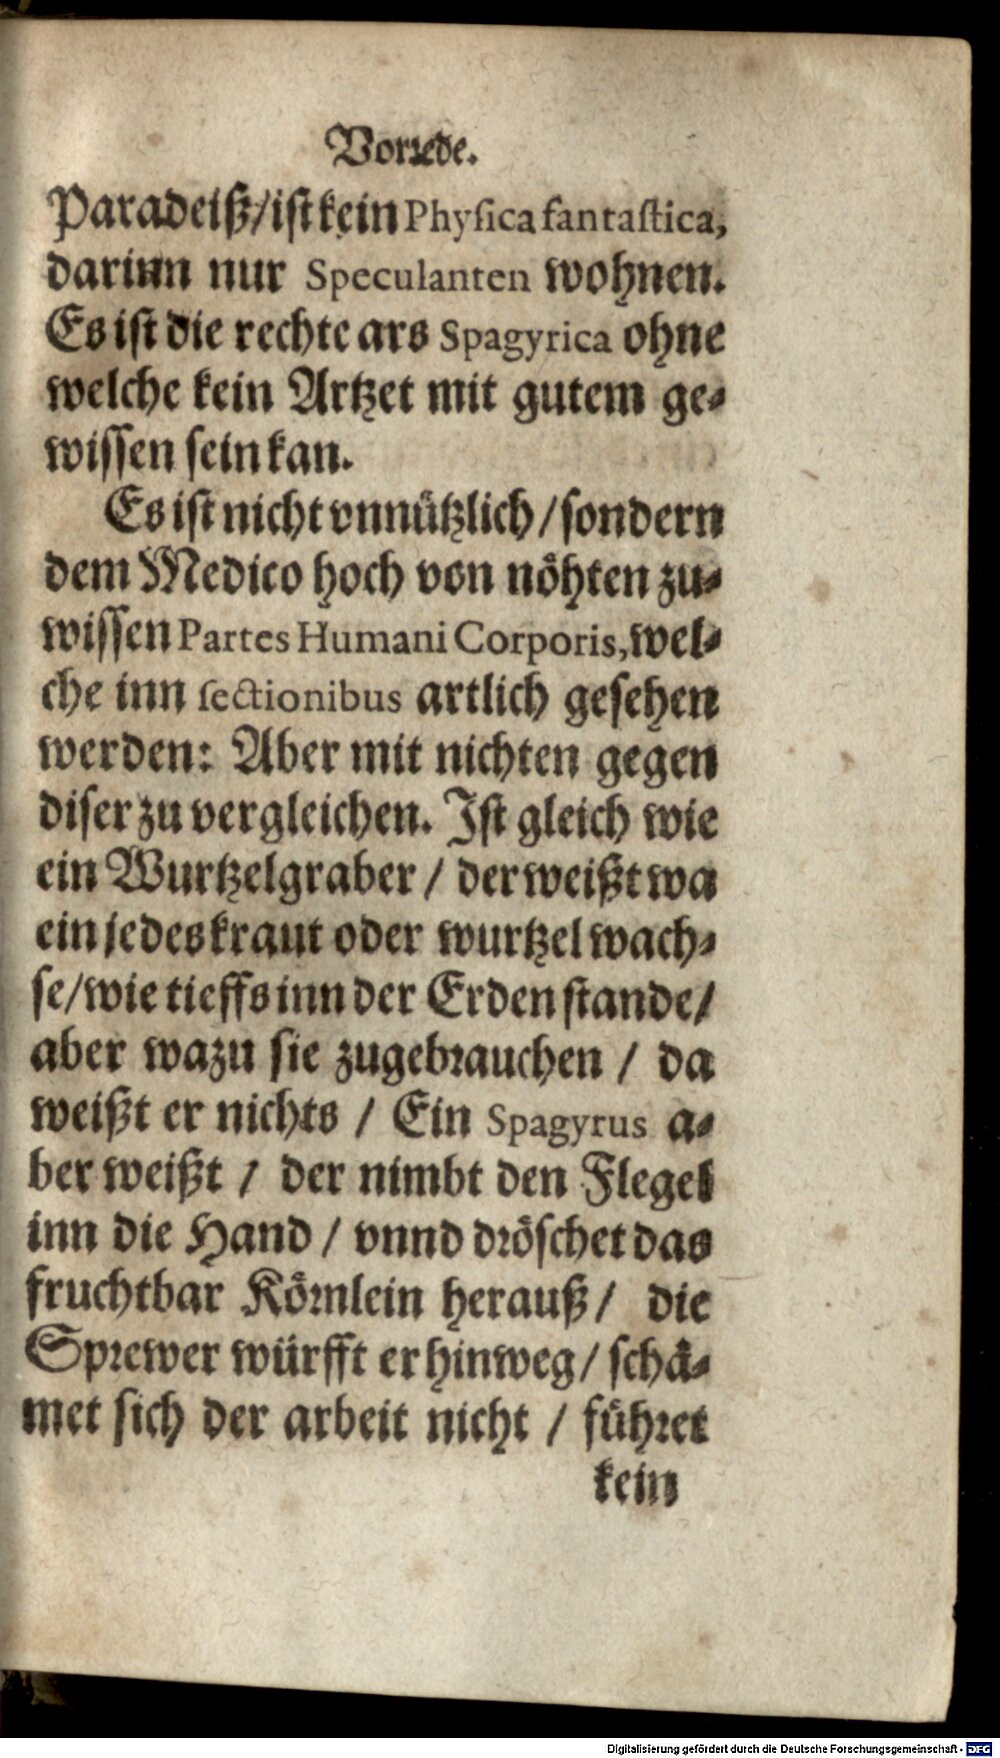 Vorrede.
Paradeiß/ist kein Physica fantastica,
darinn nur Speculanten wohnen.
Es ist die rechte ars Spagyrica ohne
welche kein Artzet mit gutem ge-
wissen sein kan.
Es ist nicht vnnützlich/sondern
dem Medico hoch von nöhten zu-
wissen Partes Humani Corporis, wel-
che inn sectionibus artlich gesehen
werden: Aber mit nichten gegen
diser zu vergleichen. Ist gleich wie
ein Wurtzelgraber / der weißt wa
ein jedes kraut oder wurtzel wach-
se/wie tieffs inn der Erden stande/
aber wazu sie zugebrauchen / da
weißt er nichts / Ein Spagyrus a-
ber weißt / der nimbt den Flegel
inn die Hand / vnnd dröschet das
fruchtbar Körnlein herauß/ die
Sprewer würfft er hinweg/ schä-
met sich der arbeit nicht / führet
kein
Digitalisierung gefördert durch die Deutsche Forschungsgemeinschaft - DFG